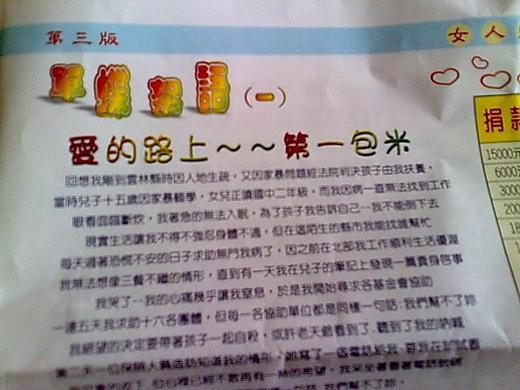 第三版
女人
單 語
(一)
愛的路上～～第一包米
捐款
15000元
6000元
3000
200
回想我剛到雲林縣時因人地生疏，又因家暴問題經法院判決孩子由我扶養，
當時兒子十五歲因家暴輟學，女兒正讀國中二年級，而我因病一直無法找到工作
眼看面臨斷炊，我著急的無法入眠，為了孩子我告訴自己--我不能倒下去
現實生活讓我不得不強忍身體不適，但在這陌生的縣市我能找誰幫忙
每天過著恐慌不安的日子求助無門我病了，因之前在北部我工作順利生活優渥
我無法想像三餐不繼的情形，直到有一天我在兒子的筆記上發現一篇賣身啓事
我哭了--我的心痛幾乎讓我窒息，於是我開始尋求各基金會協助
一連五天我求助十六各團體，但每一各協助單位都是同樣一句話:我們幫不了妳
我絕望的決定要帶著孩子一起自殺，或許老天爺看到了、聽到了我的吶喊
第二天一位保險人員造訪知道我的情形，她寫了一個電話給我